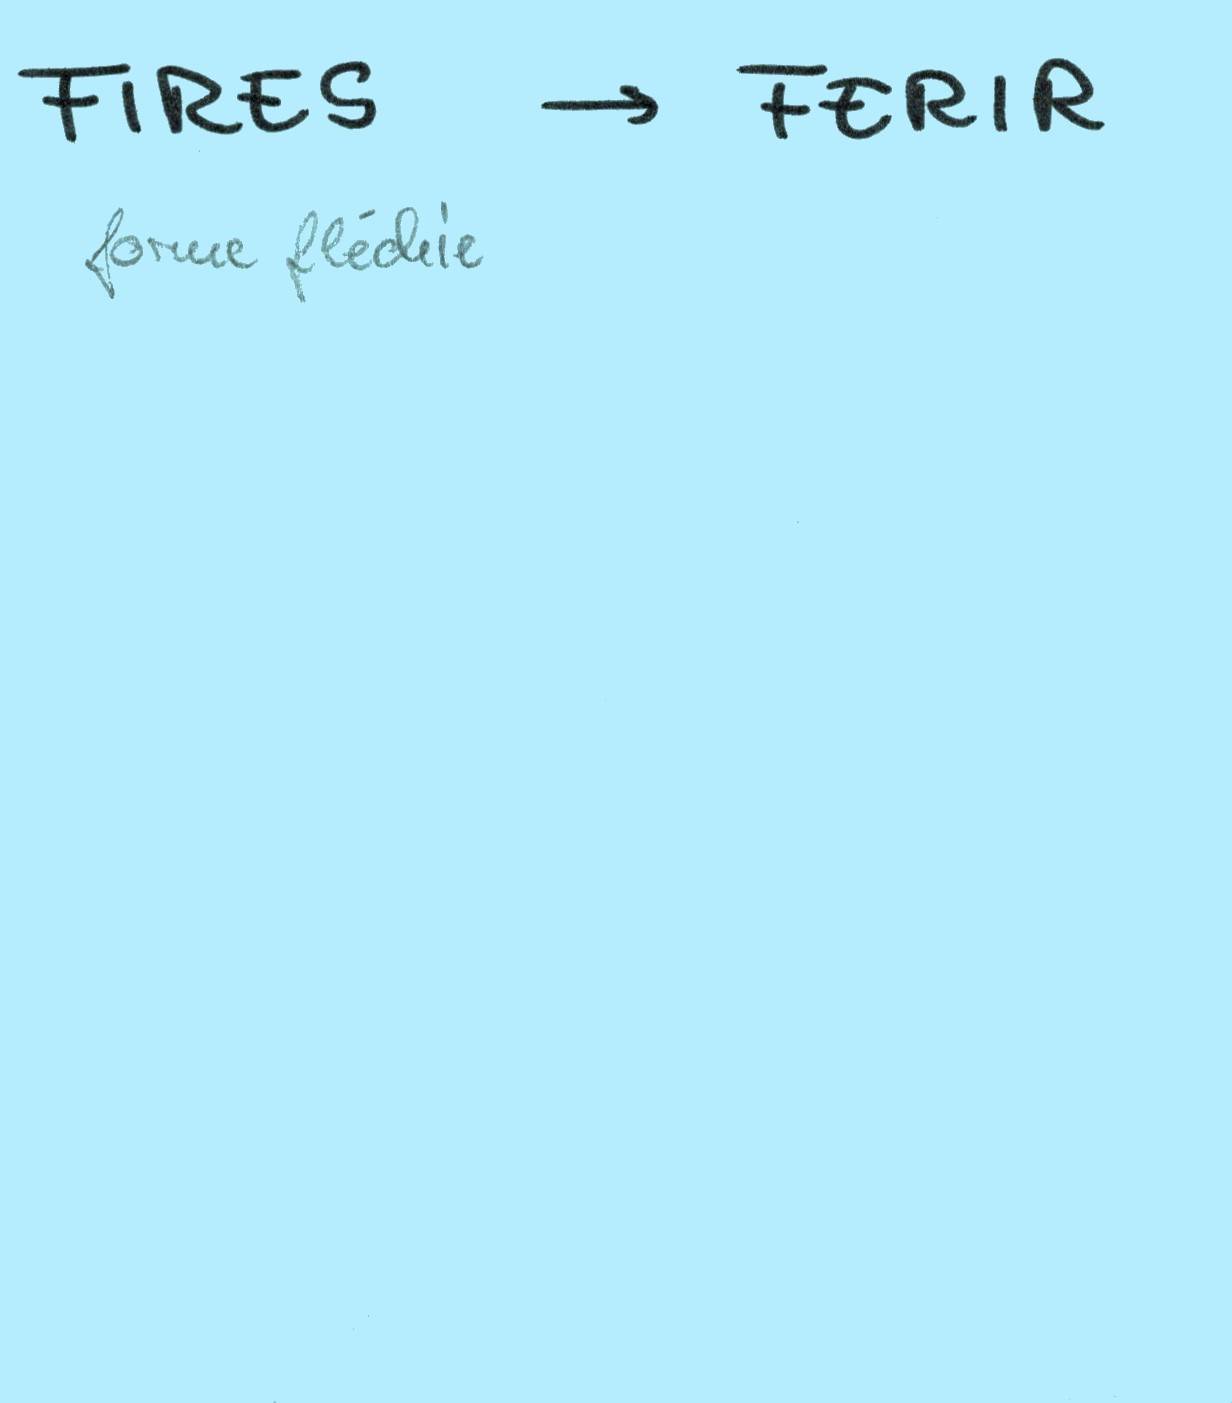 FIRES → FERIR
forme fléchie